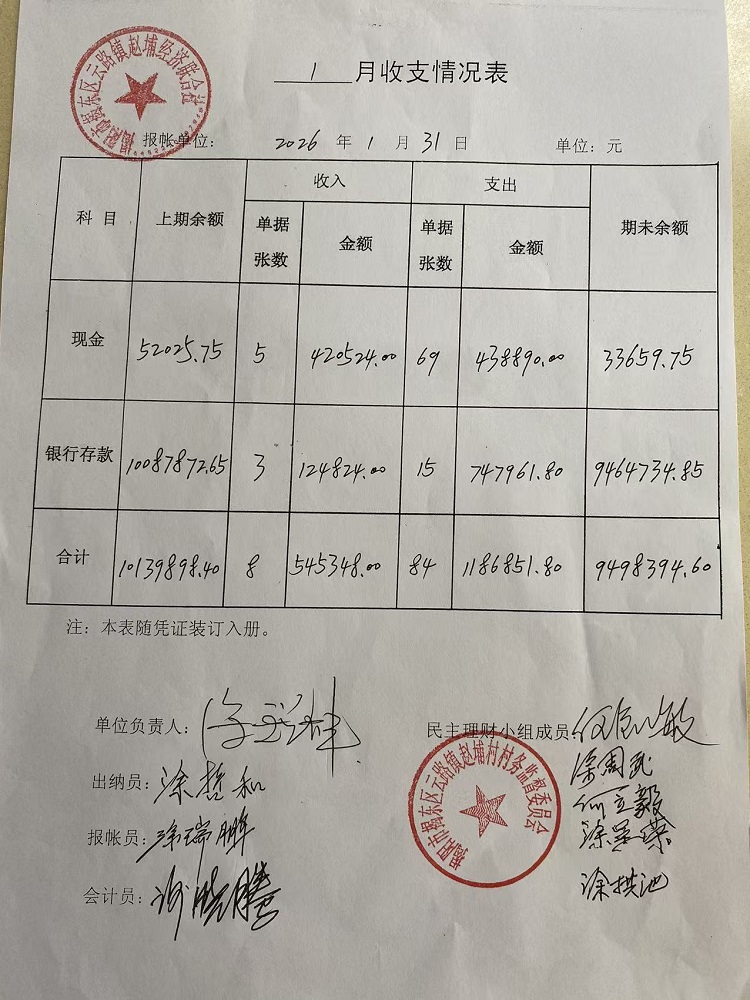 揭阳市揭东区云路镇赵埔经济联合社
1 月收支情况表
报帐单位： 2026 年 1 月 31 日 单位：元
科 目 上期余额 收入 支出 期未余额
单据张数 金额 单据张数 金额
现金 52025.75 5 420524.00 69 438890.00 33659.75
银行存款 10087872.65 3 124824.00 15 747961.80 9464734.85
合计 10139898.40 8 545348.00 84 1186851.80 9498394.60
注：本表随凭证装订入册。
单位负责人： 民主理财小组成员：
揭阳市揭东区云路镇赵埔村村务监督委员会
出纳员：涂哲和
涂周武
何立毅
报帐员：涂瑞鹏
会计员：谢晓腾
涂拱池